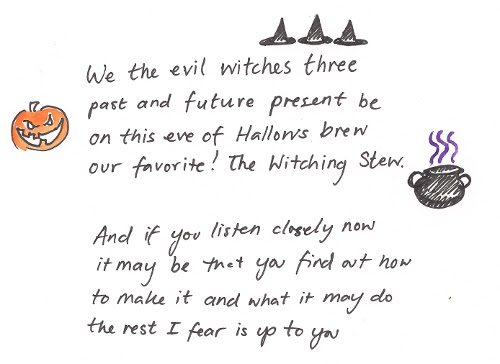 We the evil witches three
past and future present be
on this eve of Hallows brew
our favorite! The Witching Stew.
And if you listen closely now
it may be that you find out how
to make it and what it may do
the rest I fear is up to you